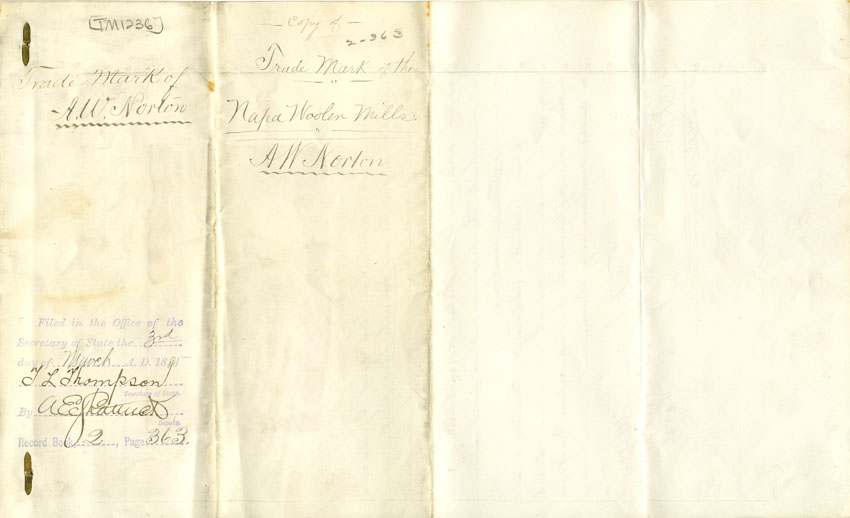 [TM1236]
Trade Mark of
A.W. Norton
Filed in the Office of the
Secretary of State the 3rd
day of March A. D. 18
T L Thompson
Secretary of State.
By
Deputy.
Record Book, 2, Page 363.
— Copy of —
2-363
Trade Mark of the
"
Napa Woolen Mills.
"
A W Norton